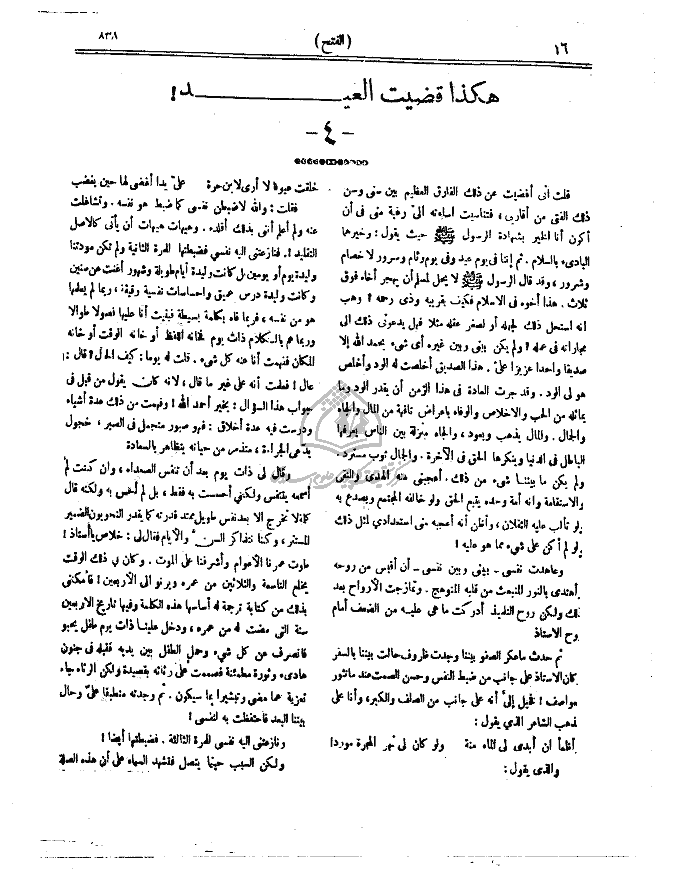 ١٦
(الفتح)
٨٣٨
هكذا قضيت العيـــــــــــــد!
- ٤ -
قلت انى أفضيت عن ذلك الفارق العظيم بين سنى وسن
ذلك الفتى من أقاربى، فتناسيت اساءته الى رغبة منى فى أن
أكون أنا الظافر بشهادة الرسول ﷺ حيث يقول: وخيرهما
البادىء بالسلام. ثم إننا فى يوم عيد وفى يوم وئام وسرور لا خصام
وشرور، وقد قال الرسول ﷺ لا يحل لمسلم أن يهجر أخاه فوق
ثلاث. هذا أخوه فى الاسلام فكيف بقريبه وذى رحمه! وهب
انه استحل ذلك لجهله أو لصغر عقله مثلا فهل يدعونى ذلك الى
مجاراته فى عمله! ولم يكن بينى وبين غيره أى شىء بحمد الله إلا
صديقا واحدا عزيزا علىّ. هذا الصديق أخلصت له الود وأخلص
هو لى الود. وقد جرت العادة فى هذا الزمن أن يقدر الود وما
يماثله من الحب والاخلاص والوفاء باعراض تافهة من المال والجاه
والجمال. والمال يذهب ويعود، والجاه منزلة بين الناس يعرفها
الباطل فى الدنيا وينكرها الحق فى الآخرة. والجمال ثوب مسترد.
ولم يكن ما بيننا شىء من ذلك. أعجبنى منه الهدى والتقى
والاستقامة وانه أمة وحده يقيم الحق ولو خالفه المجتمع ويصدع به
ولو تألب عليه الثقلان، وأظن أنه أعجبه منى استعدادى لمثل ذلك
ولو لم أكن على شىء مما هو عليه!
وعاهدت نفسى - بينى وبين نفسى - أن أقبس من روحه
وأهتدى بالنور المنبعث من قلبه المتوهج. وتمازجت الأرواح بعد
ذلك ولكن روح التلميذ أدركت ما هى عليه من الضعف أمام
روح الاستاذ
ثم حدث ما عكر الصفو بيننا وجدت ظروف حالت بيننا بالسفر
وكان الاستاذ على جانب من ضبط النفس وحسن الصمت عند ما تثور
عواصف! فخيل إلىّ أنه على جانب من الصلف والكبر، وأنا على
مذهب الشاعر الذي يقول:
وأظمأ ان أبدى لى الماء منة ولو كان لى نهر المجرة موردا
والذى يقول:
خلقت عيوفا لا أرى لابن حرة علىّ يدا أغضى لها حين يغضب
فقلت: والله لاضبطن نفسى كما ضبط هو نفسه. وتشاغلت
عنه ولم أعلم أننى بذلك أقلده. وهيهات هيهات أن يأتى كالاصل
التقليد!. فنازعتنى اليه نفسي فضبطتها للمرة الثانية ولم تكن مودتنا
وليدة يوم أو يومين بل كانت وليدة أيام طويلة وشهور أغنت عن سنين
وكانت وليدة درس عميق واحساسات نفسية رقيقة، ربما لم يعلمها
هو من نفسه، فربما فاه بكلمة بسيطة فبنيت أنا عليها فصولا طوالا
وربما هم بالكلام ذات يوم فخانه اللفظ أو خانه الوقت أو خانه
المكان ففهمت أنا عنه كل شىء. قلت له يوما: كيف الحال! قال:
عال! فعلمت أنه على غير ما قال، لانه كان يقول من قبل فى
جواب هذا السؤال: بخير أحمد الله! وفهمت من ذلك عدة أشياء
ودرست فيه عدة أخلاق: فهو صبور متجمل فى الصبر، خجول
يدعى الجراءة، متذمر من حياته يتظاهر بالسعادة
وقال لى ذات يوم بعد أن تنفس الصعداء، وان كنت لم
أسمعه يتنفس ولكنى أحسست به فقط، بل لم أحس به ولكنه قال
كلاما لا تخرج الا بعد نفس طويل ممتد قدرته كما يقدر النحويون الضمير
المستتر، وكنا نتذاكر السن والأيام فقال لى: خلاص يا أستاذ!
طوت عمرنا الأعوام وأشرفنا على الموت. وكان في ذلك الوقت
يختم التاسعة والثلاثين من عمره ويرنو الى الأربعين! فأمكننى
بذلك من كتابة ترجمة له أساسها هذه الكلمة وفيها تاريخ الاربعين
سنة التى مضت له من عمره، ودخل علينا ذات يوم طفل يحبو
فانصرف عن كل شىء وحمل الطفل بين يديه فقبله فى جنون
هادىء وثورة مطمئنة فصممت على رثائه بقصيدة ولكن الرثاء جاء
تعزية عما مضى وتبشيرا بما سيكون. ثم وجدته متطبقا علىّ وحال
بيننا البعد فاحتفظت به لنفسى!
ونازعتنى اليه نفسى للمرة الثالثة. فضبطتها أيضا!
ولكن السبب حينما يتصل فتشهد السماء على أن هذه الصلة